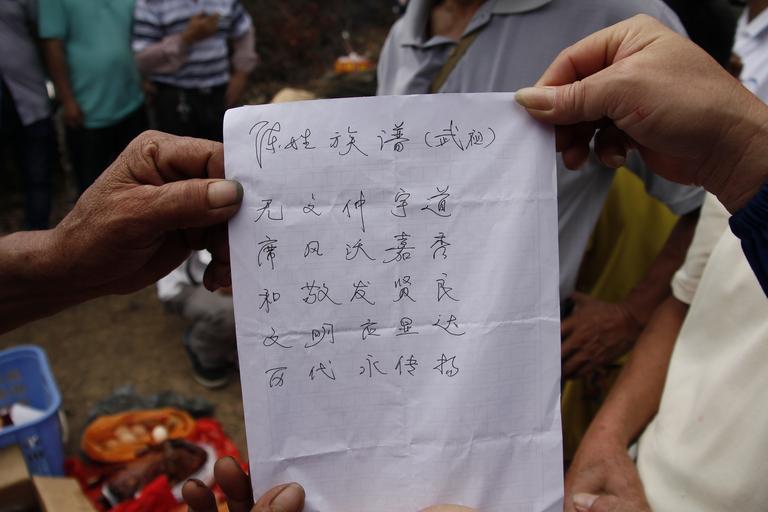 陈姓族谱(武祖)
无文仲宇道
席风沃嘉秀
和敬发贤良
文明应显达
百代永传扬